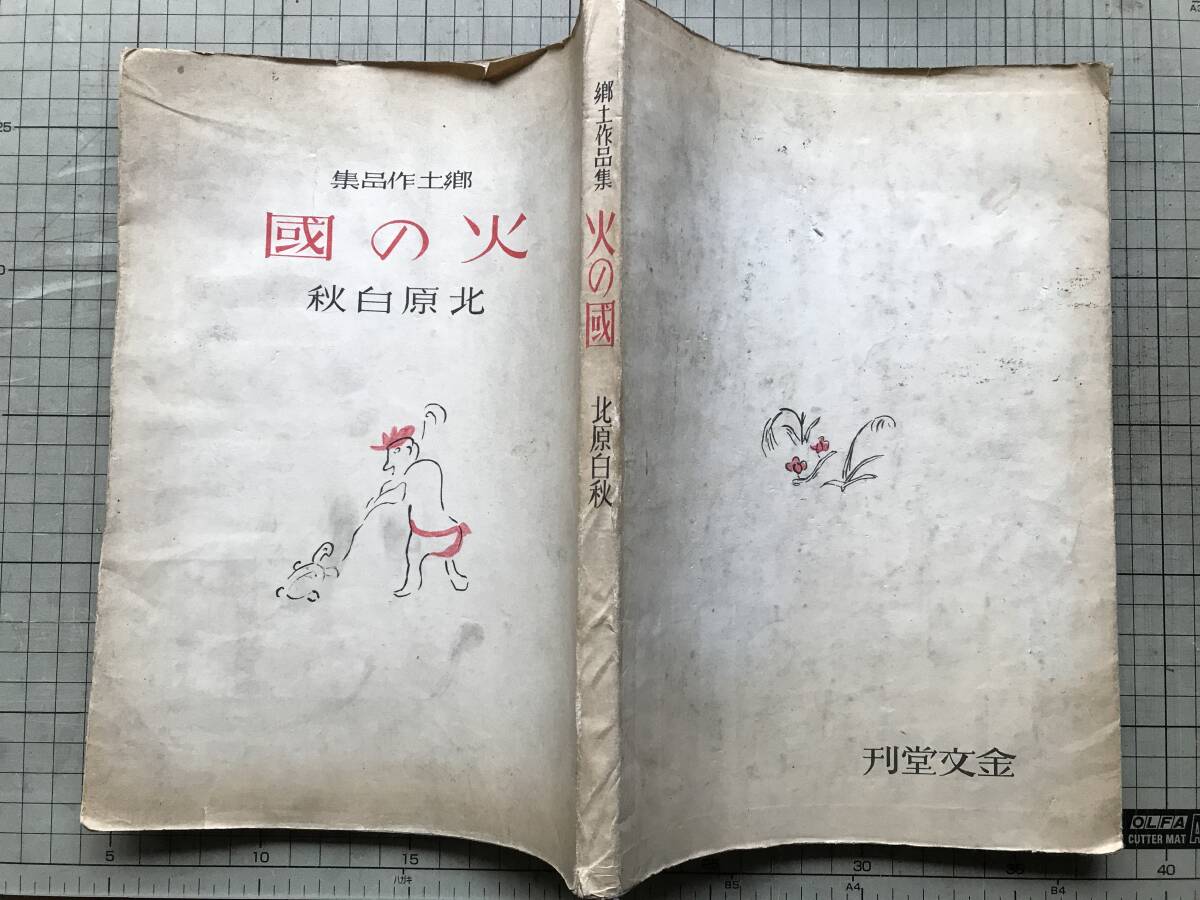 鄕土作品集
火の國
北原白秋
鄕土作品集 火の國 北原白秋
金文堂刊
25
5 10 15 30 35 40
ハガキ B5 A4 B4
OLFA
CUTTER MAT
A3